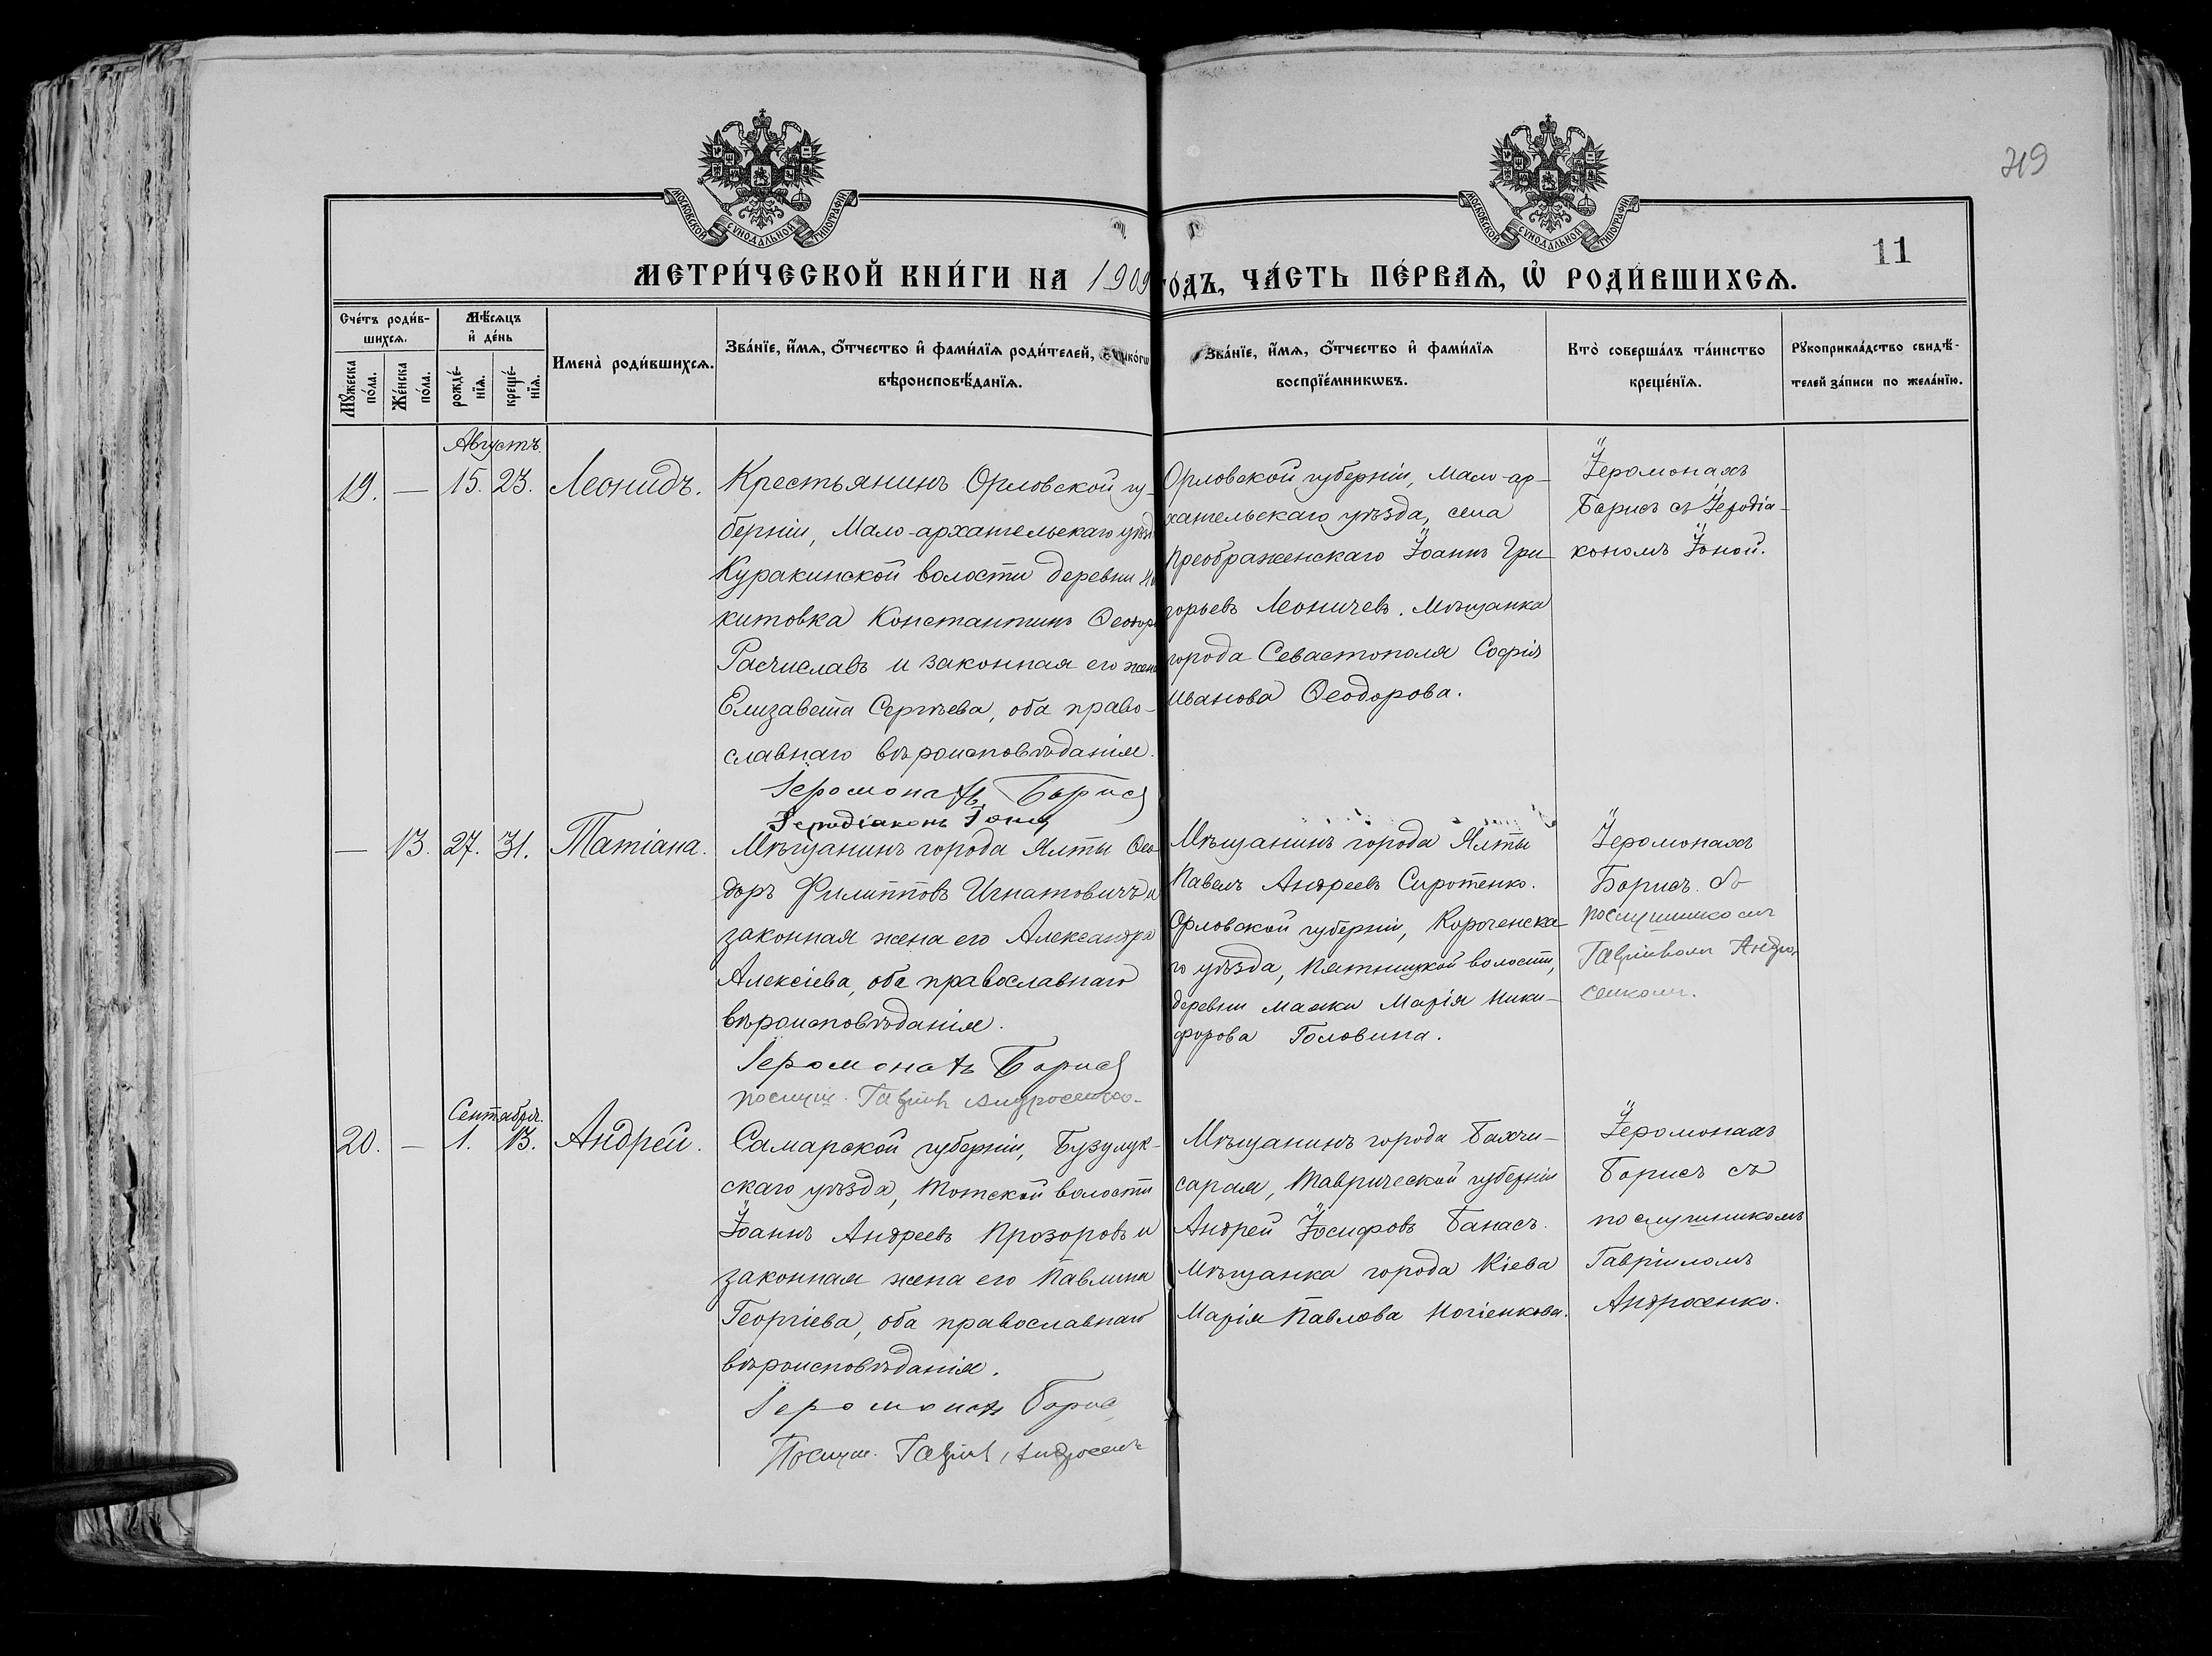 719
11
МОСКОВСКОЙ СУНОДАЛЬНОЙ ТИПОГРАФІИ
МОСКОВСКОЙ СУНОДАЛЬНОЙ ТИПОГРАФІИ
МЕТРИ́ЧЕСКОЙ КНИ́ГИ НА 1909
ГО́ДЪ, ЧА́СТЬ ПЕ́РВАѦ, Ѡ҆ РОДИ́ВШИХСѦ.
Сче́тъ роди́в-
шихсѧ.
Мꙋ́жеска по́ла.
Же́нска по́ла.
Мѣ́сѧцъ
и҆ де́нь
рожде́-
нїѧ.
креще́-
нїѧ.
Имена̀ роди́вшихсѧ.
Зва́нїе, и҆́мѧ, ѻ҆́тчество и҆ фами́лїѧ роди́телей,
вѣроисповѣ́данїѧ.
Зва́нїе, и҆́мѧ, ѻ҆́тчество и҆ фами́лїѧ
воспрїе́мникѡвъ.
Кто̀ соверша́лъ та́инство
креще́нїѧ.
Рꙋкоприкла́дство свидѣ́-
телей за́писи по жела́нїю.
Августъ.
19. — 15. 23. Леонидъ.
Крестьянинъ Орловской гу-
берніи, Мало-архангельскаго уѣзд
Куракинской волости деревни Ни
китовка Константинъ Ѳеодор
и законная его жена
Елизавета Сергѣева, оба право-
славнаго вѣроисповѣданія.
Іеромонахъ Борисъ
Іеродіаконъ Іона
Орловской губерніи, Мало-ар-
хангельскаго уѣзда, села
Преображенскаго Іоаннъ Гри-
горьевъ Леоничевъ. Мѣщанка
города Севастополя Софія
Иванова Ѳеодорова.
Іеромонахъ
Борисъ съ Іеродіа-
кономъ Іоной.
— 13. 27. 31. Татіана.
Мѣщанинъ города Ялты Ѳео-
доръ Филипповъ Игнатовичъ и
законная жена его Александра
Алексіева, оба православнаго
вѣроисповѣданія.
Іеромонахъ Борисъ
послуш. Гавріилъ Андросенко
Мѣщанинъ города Ялты
Павелъ Андреевъ Сиротенко.
Орловской губерніи, Короченска-
го уѣзда, Пятницкой волости,
деревни Марія Ники-
форова Головина.
Іеромонахъ
Борисъ съ
послушникомъ
Гавріиломъ Андро-
сенкомъ.
Сентябрь.
20. — 1. 13. Андрей.
Самарской губерніи, Бузулук-
скаго уѣзда, Тотской волости
Іоаннъ Андреевъ Прозоровъ и
законная жена его Павлина
Георгіева, оба православнаго
вѣроисповѣданія.
Іеромонахъ Борис
Послуш. Гавріилъ Андросенк
Мѣщанинъ города Бахчи-
сарая, Таврической губерніи
Андрей Іосифовъ Банасъ.
Мѣщанка города Кіева
Марія Павлова Ногіенкова.
Іеромонахъ
Борисъ съ
послушникомъ
Гавріиломъ
Андросенко.